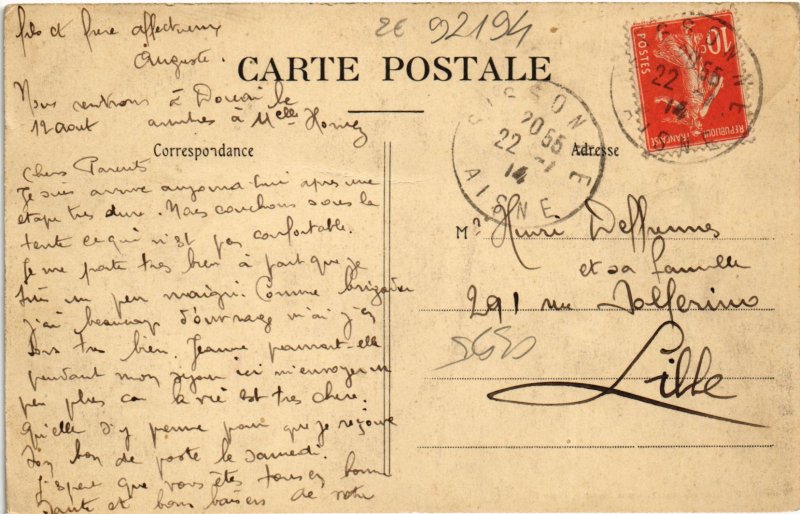 CARTE POSTALE
Correspondance
Chers Parents
Je suis arrivé aujourd'hui après une
étape très dure. Nous couchons sous la
tente ce qui n'est pas confortable.
Je me porte très bien à part que je
suis un peu maigri. Comme brigadier
j'ai beaucoup d'ouvrage m'ai j'
très bien. Jeanne pourrait-elle
pendant mon séjour ici m'envoyer un
peu plus car la vie est très chère.
Qu'elle s'y prenne pour que je reçoive
son bon de poste le samedi.
J'espère que vous êtes tous en bonne
santé et bons baisers de votre
fils et frère affectueux
Auguste.
Nous rentrons à Douai le
12 août à Melle
Adresse
Mr Henri Deffrennes
et sa famille
291 rue Solferino
Lille
2E 92194
SISSONNE
20 55
22 -7
14
AISNE
SISSONNE
55
22 -7
14
AISNE
10c
POSTES
REPUBLIQUE FRANÇAISE